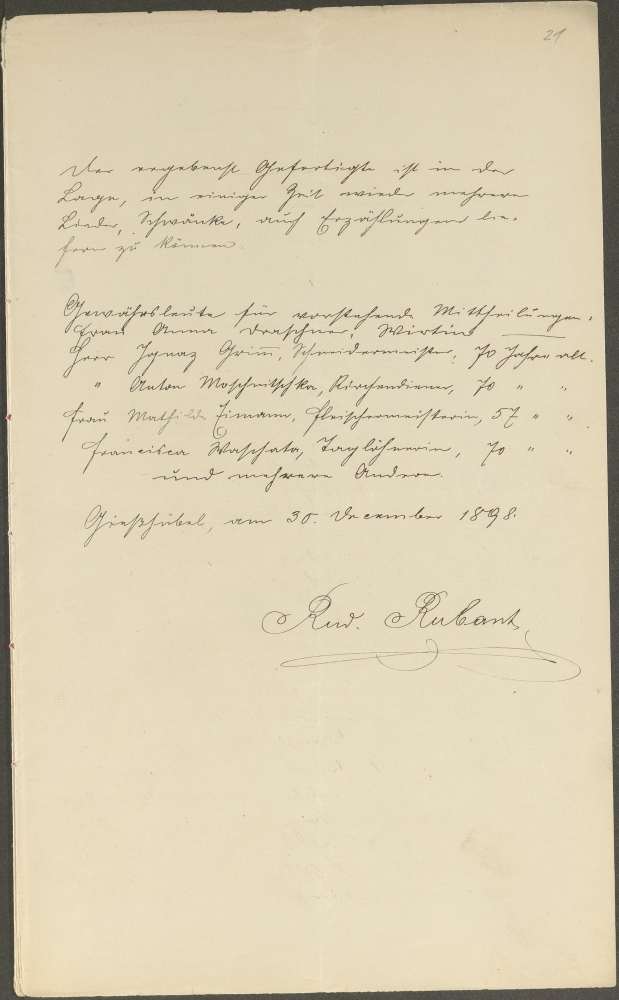 21
Der ergebenst Gefertigte ist in der
Lage, in einiger Zeit wieder mehrere
Lieder, Schwänke, auch Erzählungen lie-
fern zu können.
Gewährsleute für vorstehende Mittheilungen:
Frau Anna Draschner, Wirtin
Herr Ignaz Grimm, Schneidermeister, 70 Jahre alt.
" Anton Moschnitschka, Kirchendiener, 70 " "
Frau Mathilde Eimann, Fleischermeisterin, 57 " "
Francisca Waschata, Taglöhnerin, 70 " "
und mehrere Andere.
Gießhübel, am 30. December 1898.
Rud. Kubant